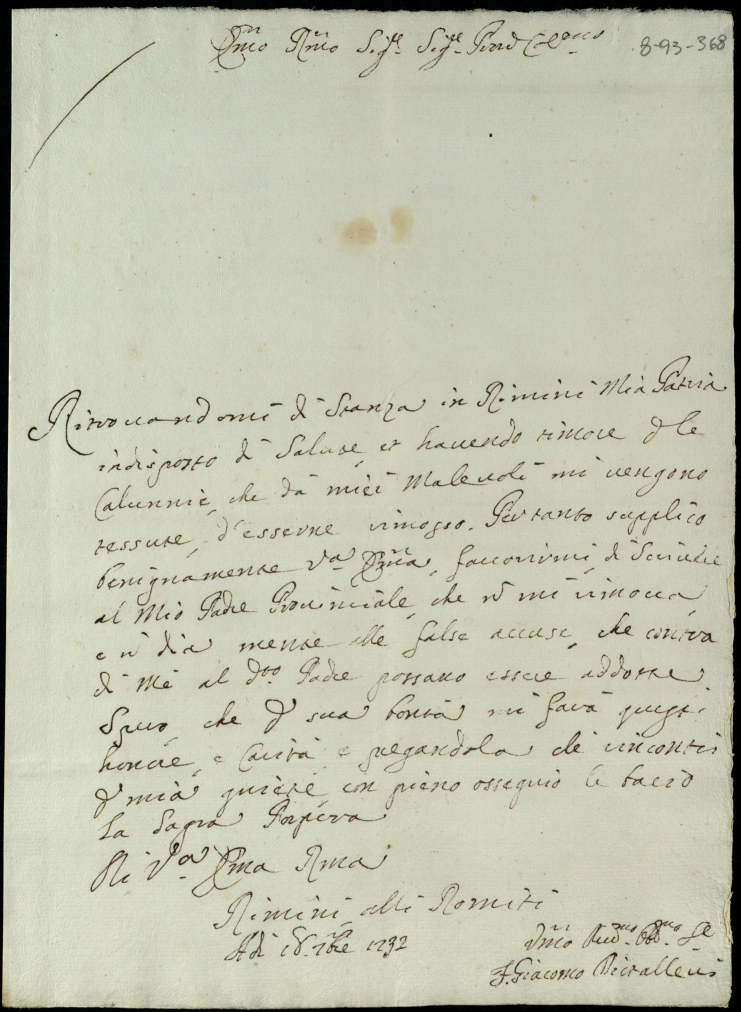 Em̃o Rm̃o Sig.re Sig.re Prõn Col.mo
8-93-368
Ritrovandomi di Stanza in Rimini Mia Patria
indisposto di Salute, et havendo timore p le
Calunnie, che da miei Malevoli mi vengono
tessute, d'esserne rimosso. Pertanto supplico
benignamente V.a Em̃a, favorirmi di Scrivere
al Mio Padre Provinciale, che ñ mi rimova,
e ñ dia mente alle false accuse, che contra
di Me al d.to Padre possano essere addotte
Spero, che p sua bontà mi farà questo
honore, e Carità e pregandola de rincontri
p mia quiete, con pieno ossequio le bacio
La Sagra Porpora
Di V.a Em̃a Rm̃a
Rimini alli Romiti
Adi 18 7bre 1732
Um̃o Dev.mo Obb.mo Se
F. Giacomo